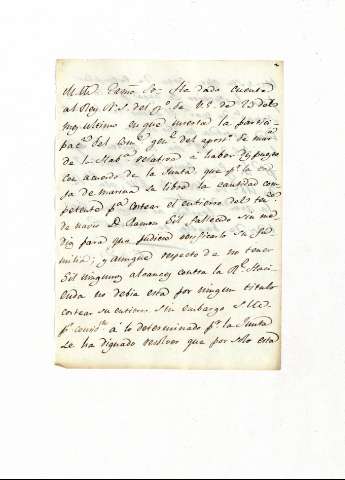 Exmo. Sor. He dado cuenta
al Rey N. S. del of.o de V.E. de 23 de
Mayo ultimo en que inserta la partici-
pac.on del Com.te gen.l del apost.o de mar.a
de la Hab.a relativa á haber dispuesto
con acuerdo de la Junta que p.r la ca-
ja de marina se libre la cantidad com-
petente p.a costear el entierro del ten.te
de navio D. Ramon Gil fallecido sin me-
dios para que pudiera verificarlo su fa-
milia; y aunque respecto de no tener
Gil ningunos alcances contra la R.l Haci-
enda no debia esta por ningun titulo
costear su entierro. Sin embargo S.M.
á lo determinado p.r la Junta
se ha dignado resolver que por solo esta